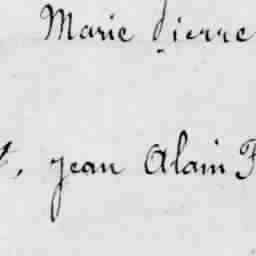 Marie Pierre
Jean Alain